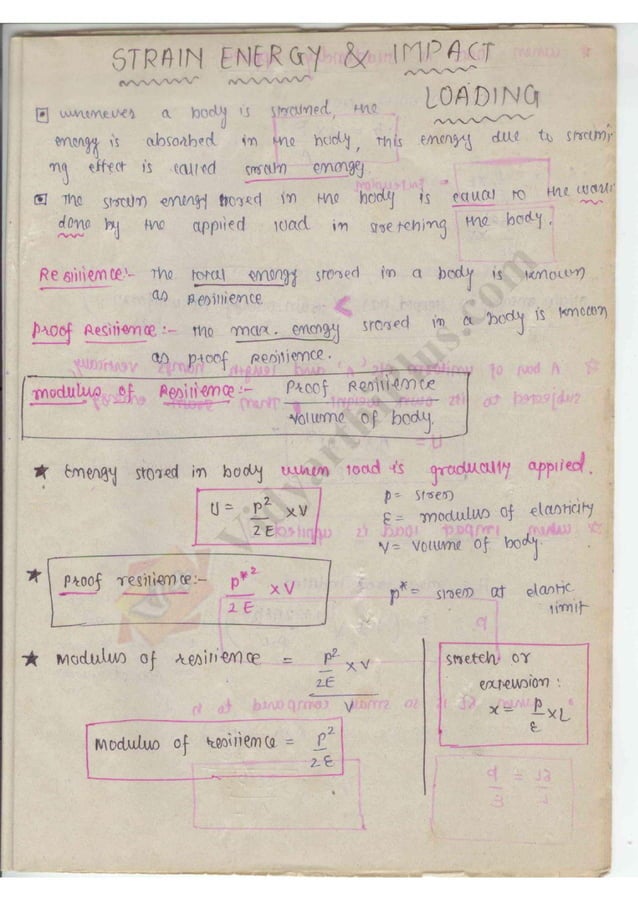 STRAIN ENERGY & IMPACT
LOADING
whenever a body is strained, the
energy is absorbed in the body, this energy due to straini
ng effect is called strain energy.
The strain energy stored in the body is equal to the work
done by the applied load in stretching the body.
Resilience:- The total energy stored in a body is known
as Resilience
Proof Resilience:- The max. energy stored in a body is known
as proof resilience.
modulus of Resilience:- Proof Resilience
Volume of body.
★ Energy stored in body when load is gradually applied.
U = P²/2E × V
P = stress
E = modulus of elasticity
V = Volume of body.
★ Proof resilience:- P*²/2E × V
P* = stress at elastic
limit
★ Modulus of resilience = P²/2E × V
V
Modulus of resilience = P²/2E
stretch or
extension:
x = P/E × L
Vidyarthiplus.com